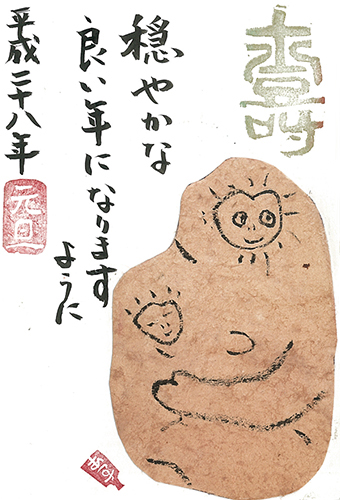 壽
穏やかな
良い年になります
ように
平成二十八年
元旦